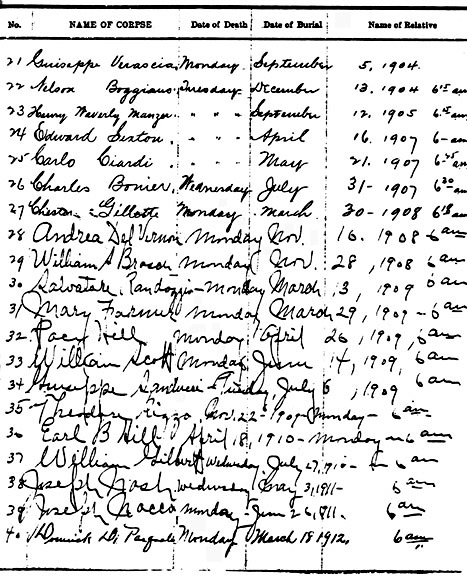 No. NAME OF CORPSE Date of Death Date of Burial Name of Relative
21 Guiseppe Versacia, Monday, September 5, 1904.
22 Nelson Boggians, Tuesday December 13. 1904 6 15 am
23 Henry Waverly Manzer " " " September 12. 1905 6 45 am
24 Edward Sexton. " " " April 16. 1907 6- am
25 Carlo Ciardi. " " " May 21. 1907 6 25 am
26 Charles Bonier, Wednesday July 31- 1907 6 20 am
27 Chester Gillette Monday March. 30-1908 6 18 am
28 Andrea Del Vermo Monday Nov. 16. 1908 6 am
29 William S Brasch Monday Nov. 28, 1908 6 am
30 Salvatore Randazzio-Monday March, 3, 1909 6 am
31 Mary Farmer Monday March 29, 1909 - 6 am
32. Hill Monday April 26, 1909, 6 am
33 William Scott Monday, June 14, 1909, 6 am
34 Guiseppe Sanducci - Tuesday, July 6, 1909 6 am
35 Theodore Rizzo Nov. 22 - 1909 - Monday - 6 am
36 Earl B Hill April 18, 1910 - Monday - 6 am
37 William Gilbert Wednesday, July 27, 1910 - 6 am
38 Joseph Nash, Wednesday, May 3, 1911- 6 am
39 Joseph Nacco, Monday - June 26, 1911. 6 am
40 Dominick Di Pasquale Monday March 18 1912, 6 am